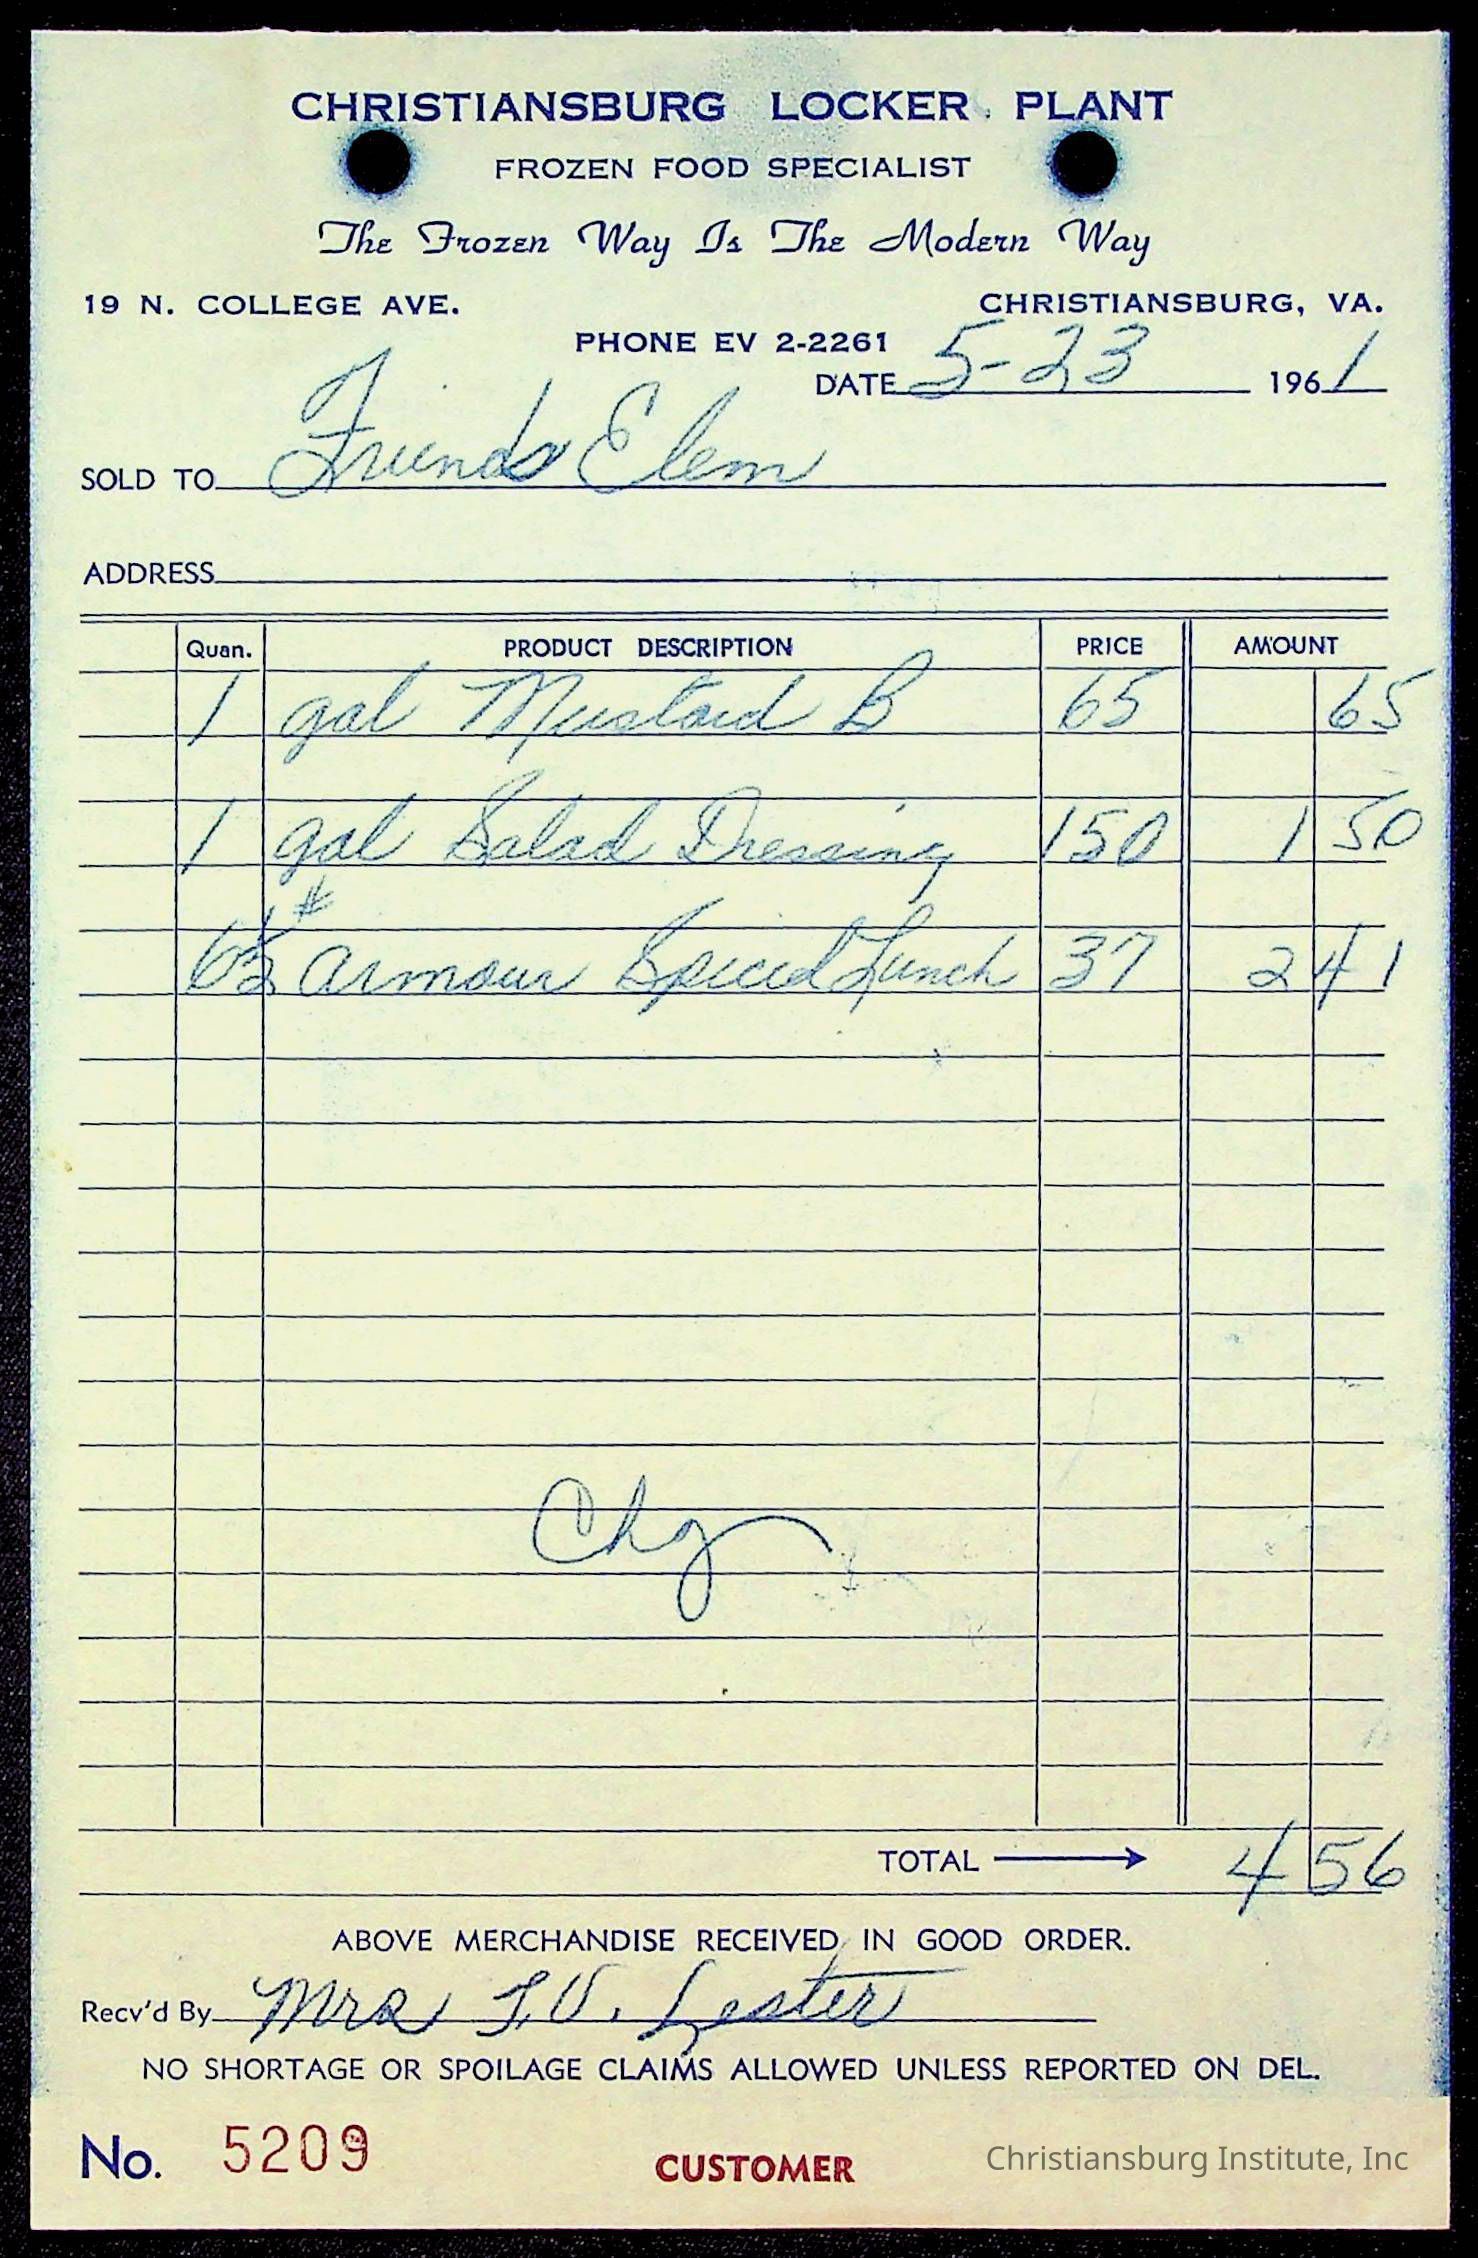 CHRISTIANSBURG LOCKER PLANT
FROZEN FOOD SPECIALIST
The Frozen Way Is The Modern Way
19 N. COLLEGE AVE. CHRISTIANSBURG, VA.
PHONE EV 2-2261
DATE 5-23 1961
SOLD TO Friends Elem
ADDRESS
Quan. PRODUCT DESCRIPTION PRICE AMOUNT
1 gal Mustard B 65 65
1 gal Salad Dressing 150 1 50
6½ # Armour Spiced Lunch 37 2 41
Chg
TOTAL 4 56
ABOVE MERCHANDISE RECEIVED IN GOOD ORDER.
Recv'd By Mrs T.V. Lester
NO SHORTAGE OR SPOILAGE CLAIMS ALLOWED UNLESS REPORTED ON DEL.
No. 5209 CUSTOMER Christiansburg Institute, Inc